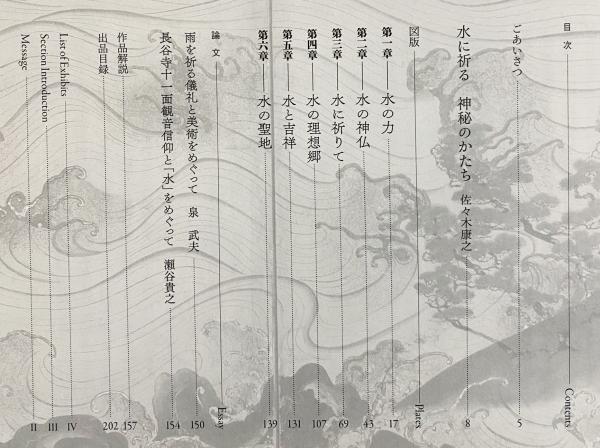 目次 Contents
ごあいさつ 5
水に祈る 神秘のかたち 佐々木康之 8
図版 Plates
第一章 水の力 17
第二章 水の神仏 43
第三章 水に祈りて 69
第四章 水の理想郷 107
第五章 水と吉祥 131
第六章 水の聖地 139
論文 Essay
雨を祈る儀礼と美術をめぐって 泉 武夫 150
長谷寺十一面観音信仰と「水」をめぐって 瀬谷貴之 154
作品解説 157
出品目録 202
List of Exhibits IV
Section Introduction III
Message II